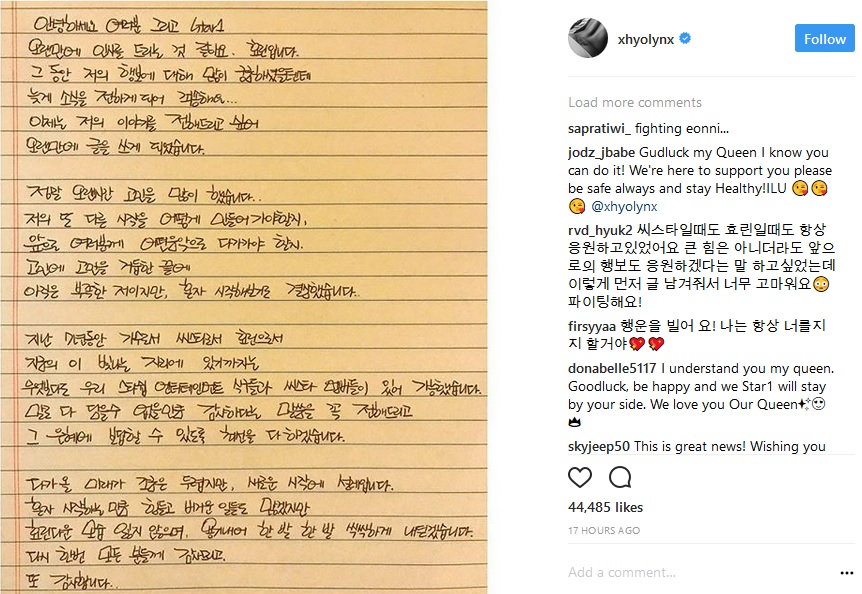 안녕하세요 여러분 그리고 star1
오랜만에 인사를 드리는 것 같네요. 효린입니다.
그 동안 저의 행보에 대해 많이 궁금하셨을텐데
늦게 소식을 전하게 되어 죄송해요...
이제는 저의 이야기를 전해드리고 싶어
오랜만에 글을 쓰게 되었습니다.
정말 오랜시간 고민을 많이 했습니다..
저의 또 다른 시작을 어떻게 만들어가야할지,
앞으로 여러분께 어떤음악으로 다가가야 할지.
고민에 고민을 거듭한 끝에
아직은 부족한 저이지만, 혼자 시작해보기로 결정했습니다..
지난 7년동안 가수로서 씨스타로서 효린으로서
지금의 이 빛나는 자리에 있기까지는
무엇보다도 우리 스타쉽 엔터테인먼트 식구들과 씨스타 멤버들이 있어 가능했습니다.
말로 다 담을수 없을만큼 감사하다는 말씀을 꼭 전해드리고
그 은혜에 보답할 수 있도록 최선을 다 하겠습니다.
다가올 미래가 조금은 두렵지만, 새로운 시작에 설레입니다.
혼자 시작하는 만큼 힘들고 버거운 일들도 많겠지만
효린다운 모습 잃지 않으며, 용기내어 한 발 한 발 씩씩하게 내딛겠습니다.
다시 한번 모든 분들께 감사드리고,
또 감사합니다..
xhyolynx
Follow
Load more comments
sapratiwi_ fighting eonni...
jodz_jbabe Gudluck my Queen I know you
can do it! We're here to support you please
be safe always and stay Healthy!ILU 😘😘
😘 @xhyolynx
rvd_hyuk2 씨스타일때도 효린일때도 항상
응원하고있었어요 큰 힘은 아니더라도 앞으
로의 행보도 응원하겠다는 말 하고싶었는데
이렇게 먼저 글 남겨줘서 너무 고마워요😳
파이팅해요!
firsyyaa 행운을 빌어 요! 나는 항상 너를지
지 할거야💖💖
donabelle5117 I understand you my queen.
Goodluck, be happy and we Star1 will stay
by your side. We love you Our Queen✨😍
👑
skyjeep50 This is great news! Wishing you
44,485 likes
17 HOURS AGO
Add a comment...